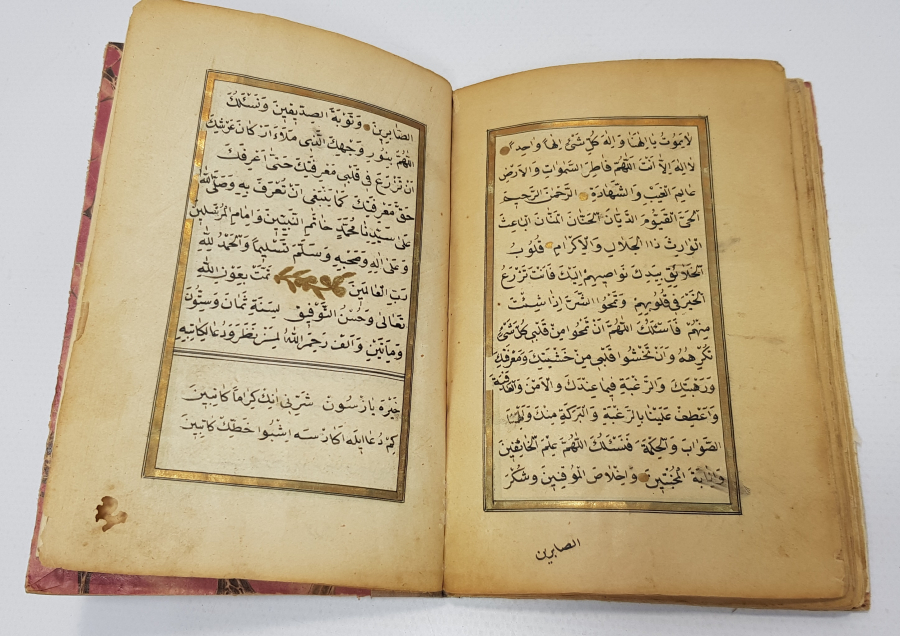 لايموت يا الهنا واله كل شئ الها واحدا
لا اله الا انت اللهم فاطر السموات والارض
عالم الغيب والشهادة الرحمن الرحيم
الحى القيوم الديان الحنان المنان الباعث
الوارث ذا الجلال والاكرام قلوب
الخلايق بيدك نواصيهم اليك فانت تزرع
الخير فى قلوبهم وتمحوا الشر اذا شئت
منهم فاسئلك اللهم ان تمحوا من قلبى كل شئ
تكرهه وان تحشوا قلبى من خشيتك ومعرفتك
ورهبتك والرغبة فيما عندك والامن والعافية
واعطف علينا بالرغبة والبركة منك والهمنا
الصواب والحكمة فنسئلك اللهم علم الخائفين
وانابة المخبتين واخلاص الموقنين وشكر
الصابرين
الصابرين وتوبة الصديقين ونسئلك
اللهم بنور وجهك الذى ملاء اركان عرشك
ان تزرع فى قلبى معرفتك حتى اعرفك
حق معرفتك كما ينبغى ان تعرف به وصلى الله
على سيدنا محمد خاتم النبيين وامام المرسلين
وعلى اله وصحبه وسلم تسليما والحمد لله
رب العالمين تمت بعون الله
تعالى وحسن التوفيق لسنة ثمان وستون
ومايتين والف رحم الله لمن نظر ودعا لكاتبه
خيره يازسون شرنى انك كراما كاتبين
كم دعا ايله اكا دسه اشبوا خطك كاتبين